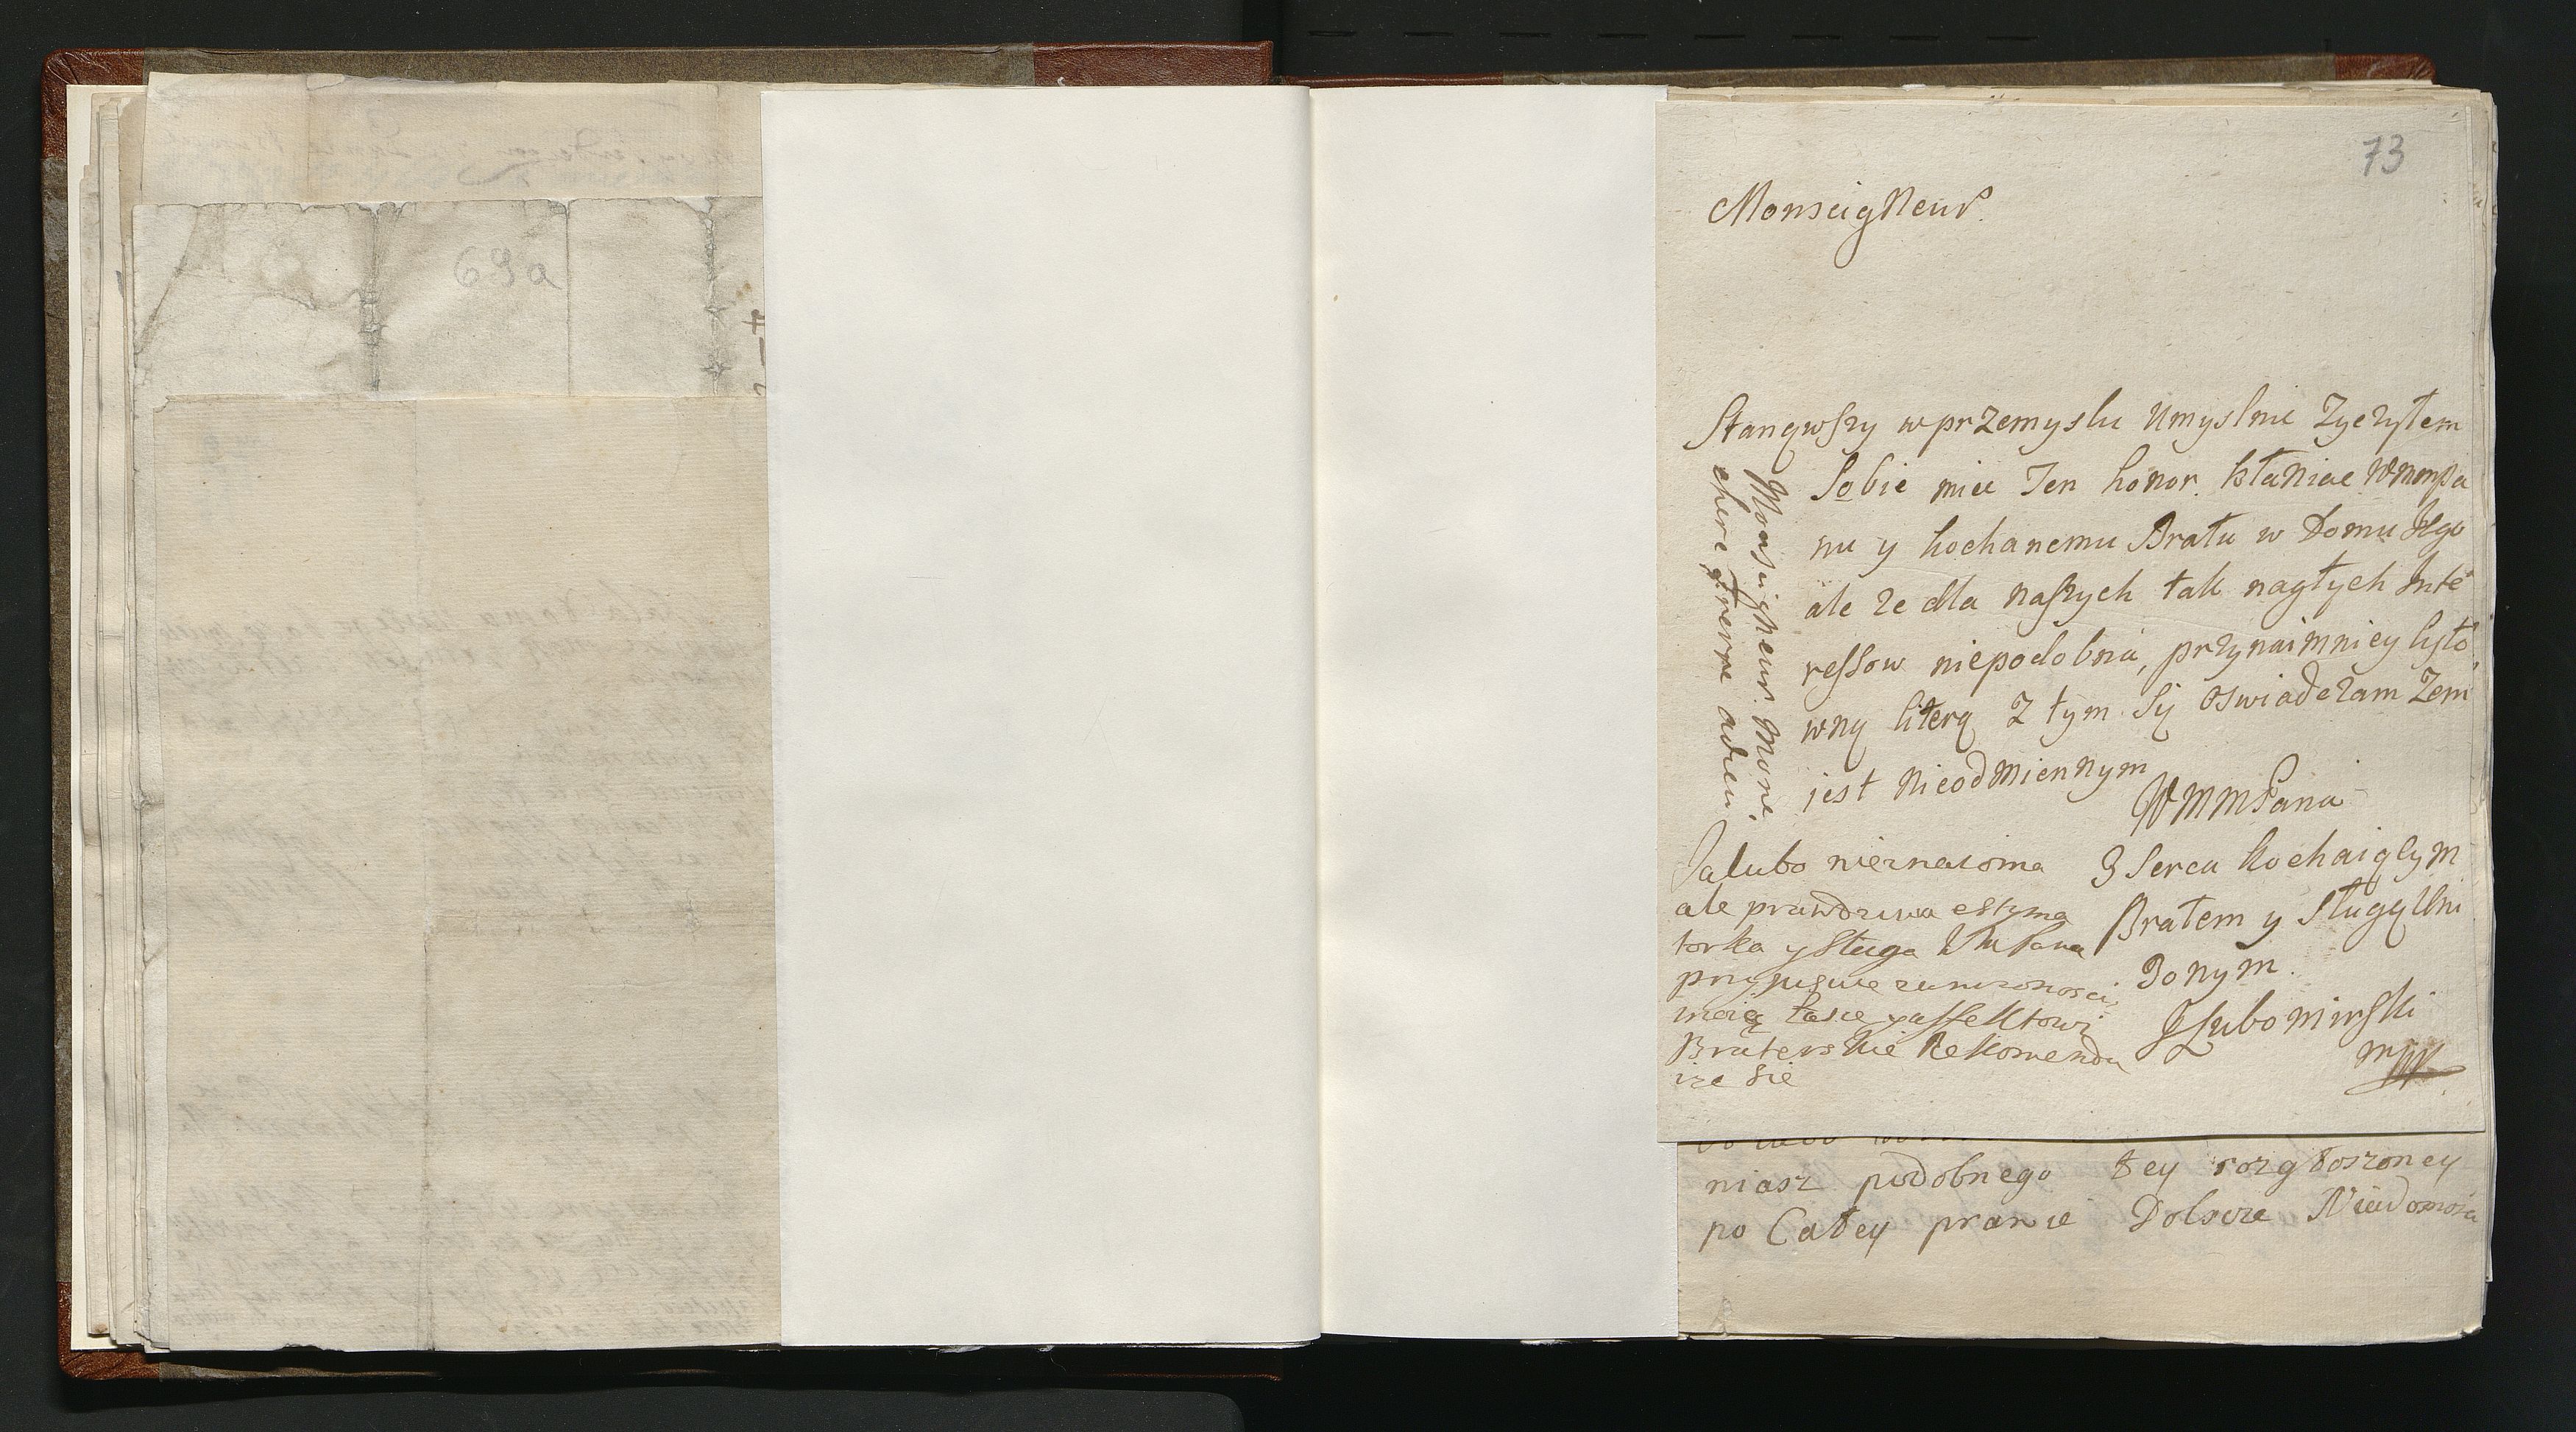 69a
73
Monseigneur.
Stanąwszy w przemyslu Umyslnie Zyczyłem
Sobie miec Ten honor. kłaniac WMMPa
nu y kochanemu Bratu w Domu Jego
ale ze dla naszych tak nagłych Inte
ressow niepodobna, przynaimniey listo
wną literą Z tym Się oswiadczam Zem
jest Nieodmiennym
WMMPana
Z Serca kochaiącym
Bratem y Sługą Uni
zonym.
JLubomirski
mpp
Monseigneur. Mone.
chere frerre adieu
Ja lubo nieznaioma
ale prawdziwa estyma
torka y Sługa WMPana
przypisuie zunizonoscią
moią łasce y affektowi
Braterskie Rekomendu
ize sie
niasz podobnego tey rozgłoszoney
po Całey prawie Polszcze Wiadomosci